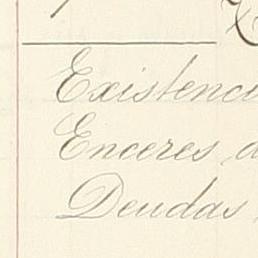 Existenci
Enceres d
Deudas